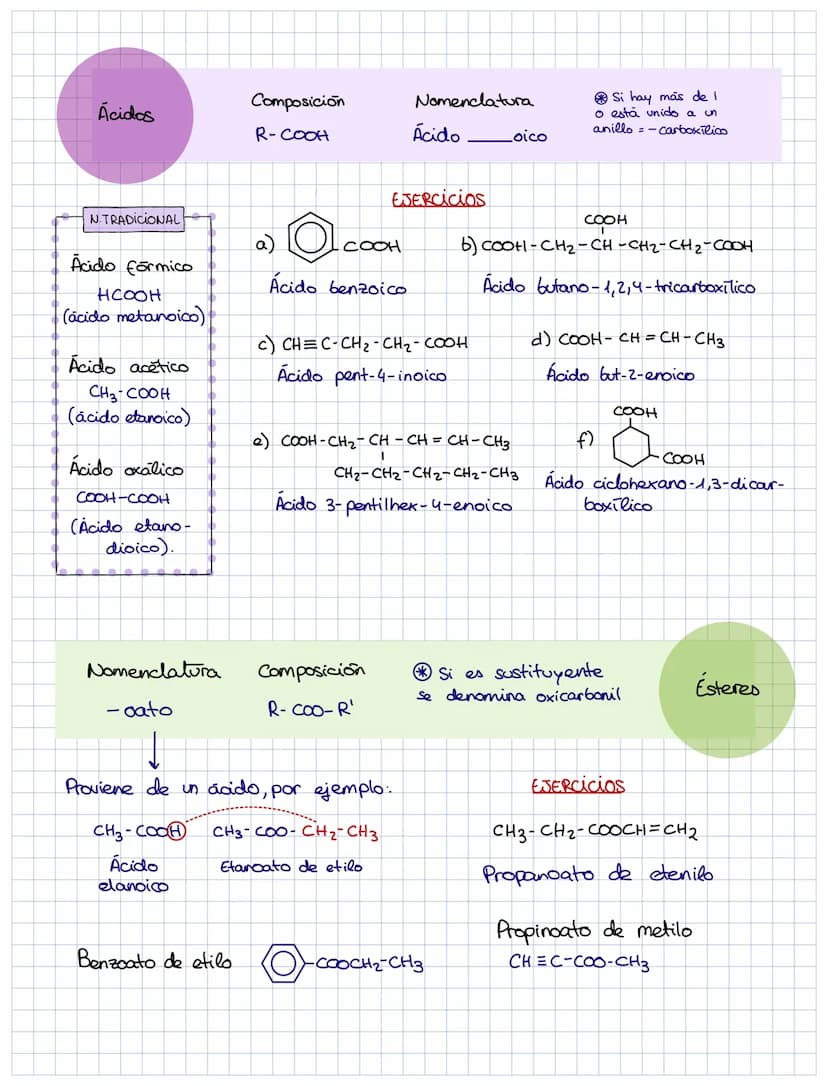 Ácidos
Composición
R-COOH
Nomenclatura
Ácido ____oico
⊛ Si hay más de 1
o está unido a un
anillo = -carboxílico
N.TRADICIONAL
Ácido fórmico
HCOOH
(ácido metanoico)
Ácido acético
CH₃-COOH
(ácido etanoico)
Ácido oxálico
COOH-COOH
(Ácido etano-
dioico).
EJERCICIOS
a) COOH
Ácido benzoico
COOH
b) COOH-CH₂-CH-CH₂-CH₂-COOH
Ácido butano-1,2,4-tricarboxílico
c) CH≡C-CH₂-CH₂-COOH
Ácido pent-4-inoico
d) COOH-CH=CH-CH₃
Ácido but-2-enoico
e) COOH-CH₂-CH-CH=CH-CH₃
CH₂-CH₂-CH₂-CH₂-CH₃
Ácido 3-pentilhex-4-enoico
COOH
f) COOH
Ácido ciclohexano-1,3-dicar-
boxílico
Nomenclatura
-oato
Composición
R-COO-R'
⊛ Si es sustituyente
se denomina oxicarbonil
Ésteres
Proviene de un ácido, por ejemplo:
CH₃-COOH CH₃-COO-CH₂-CH₃
Ácido
etanoico
Etanoato de etilo
Benzoato de etilo
-COOCH₂-CH₃
EJERCICIOS
CH₃-CH₂-COOCH=CH₂
Propanoato de etenilo
Propinoato de metilo
CH≡C-COO-CH₃